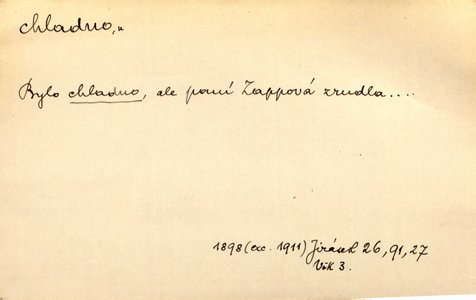 chladno,,
Bylo chladno, ale paní Zappová zrudla....
1898 (exc. 1911) Jirásek 26, 91, 27
Věk 3.